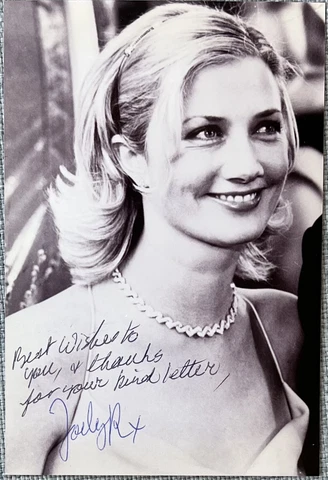 Best Wishes to
you, & thanks
for your kind letter,
Joely R x